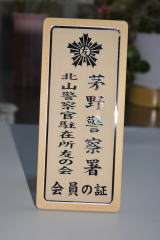 茅野警察署
北山警察官駐在所友の会
会員の証